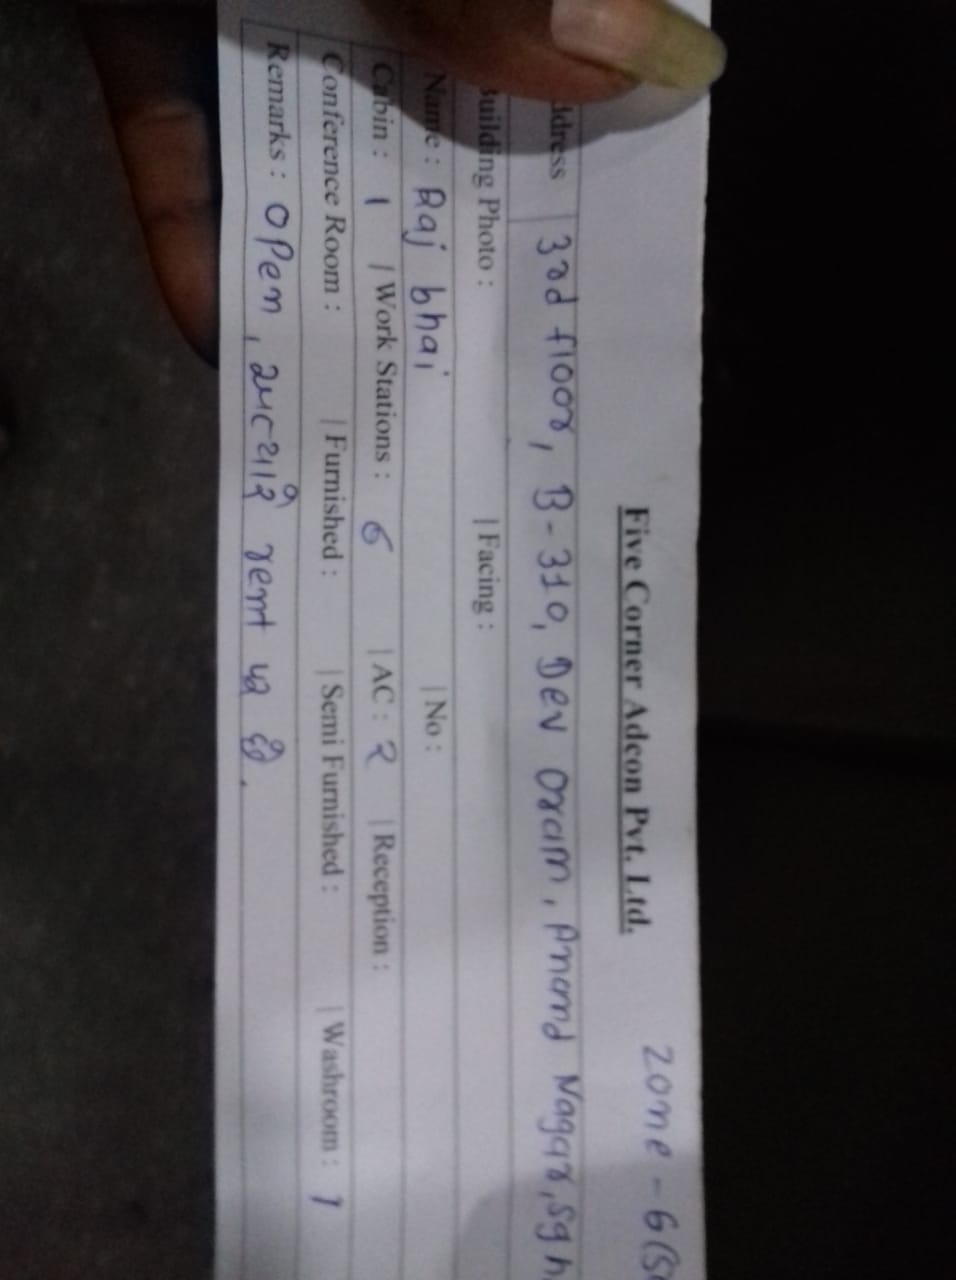 zone - 6 (S
Five Corner Adcon Pvt. Ltd.
ddress | 3rd floor, B-310, Dev oram, Anand Nagar, sg h
uilding Photo : | Facing :
Name : Raj bhai | No :
Cabin : 1 | Work Stations : 6 | AC : 2 | Reception :
Conference Room : | Furnished : | Semi Furnished : | Washroom : 1
Remarks : open, rent છે.